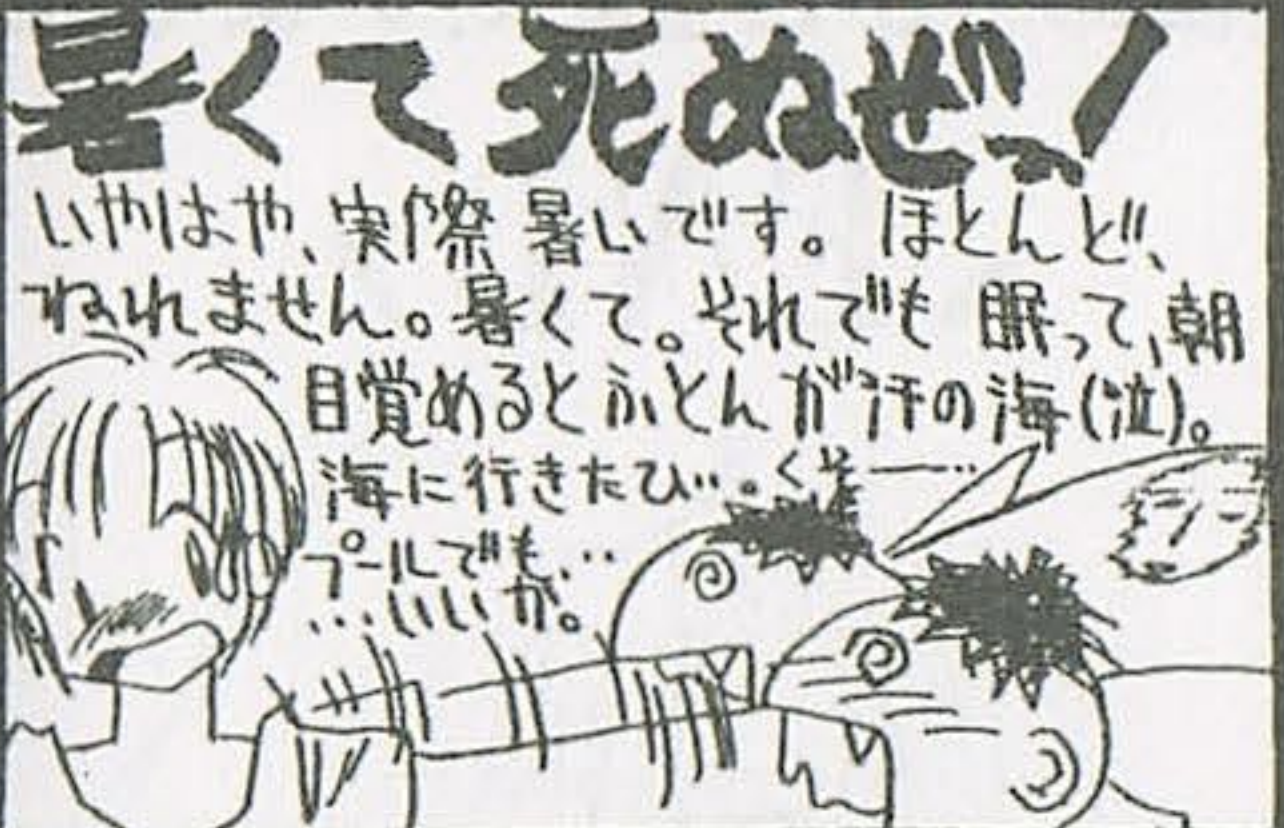 暑くて死ぬぜっ!
いやはや、実際暑いです。ほとんど、
ねれません。暑くて。それでも眠って、朝
目覚めるとふとんが汗の海(泣)。
海に行きたひ…。くそー…
プールでも…
…いいが。